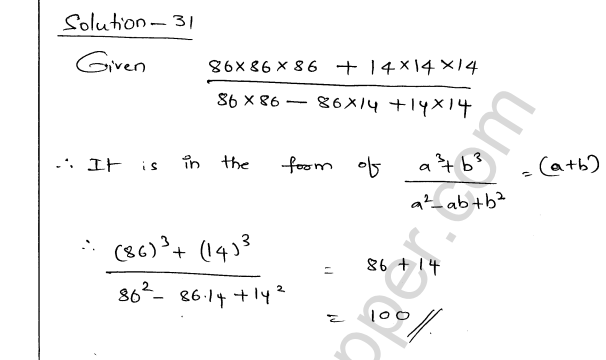 Solution - 31
Given (86×86×86 + 14×14×14)/(86×86 − 86×14 + 14×14)
∴ It is in the form of (a³+b³)/(a²−ab+b²) = (a+b)
∴ ((86)³ + (14)³)/(86² − 86·14 + 14²) = 86 + 14
= 100 //
pper.com